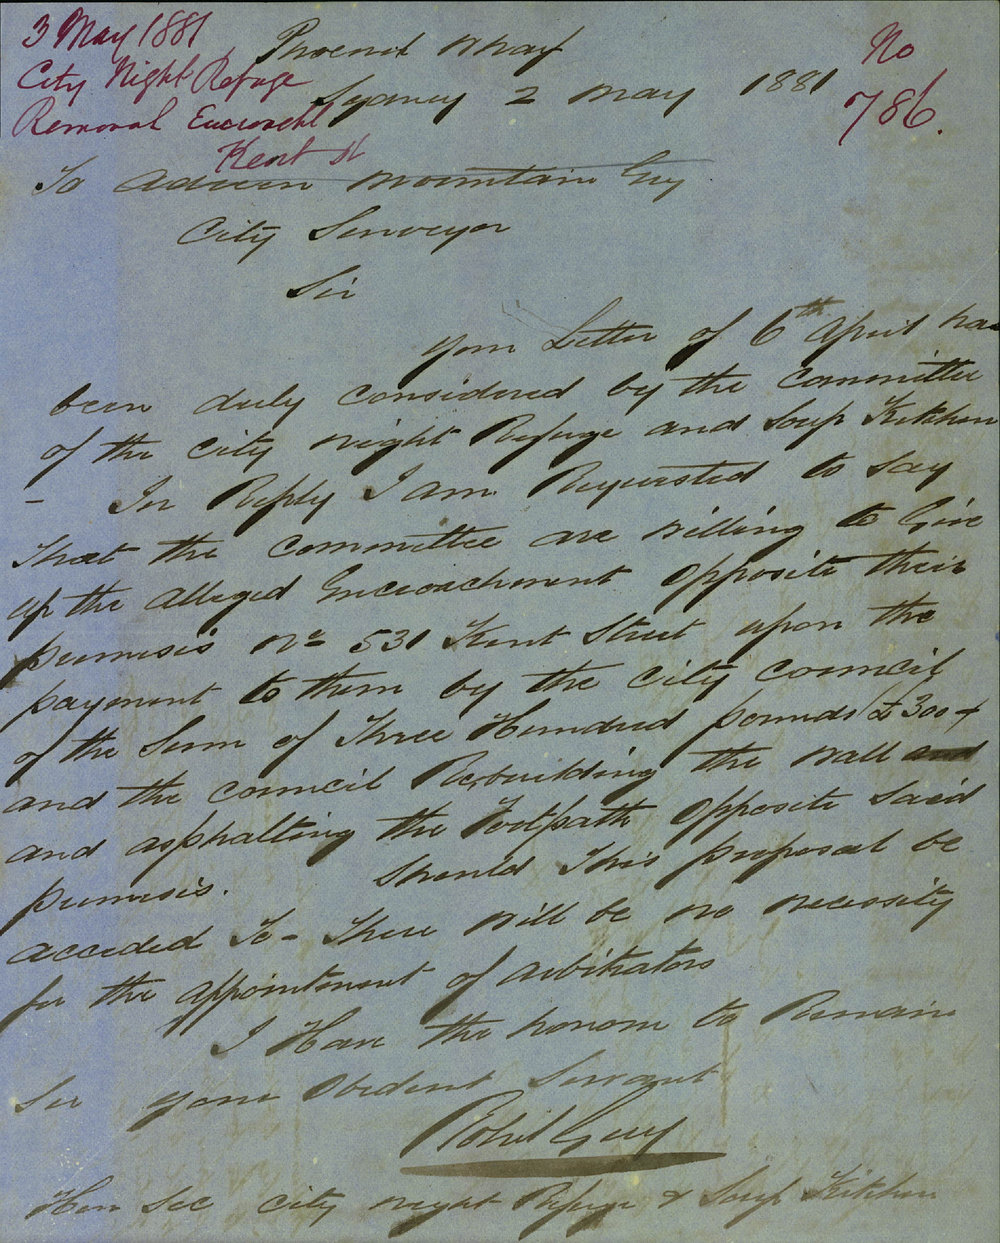 3 May 1881
City Night Refuge
Removal Encroacht
Kent St
No
786.
Phoenix Wharf
Sydney 2 May 1881
To Adrien Mountain Esq
City Surveyor
Sir
your Letter of 6th April has
been duly considered by the Committee
of the City Night Refuge and Soup Kitchen
- In Reply I am Requested to say
that the Committee are willing to Give
up the alleged Encroachment opposite their
premisis No 531 Kent Street upon the
payment to them by the City Council
of the Sum of Three Hundred pounds £300-
and the Council Rebuilding the wall and
and asphalting the Footpath opposite Said
premisis. Should This proposal be
acceded To - There will be no necessity
for the appointment of arbitrators
I Have the honour to Remain
Sir your Obedient Servant
Robt Guy
Hon Sec City Night Refuge & Soup Kitchen